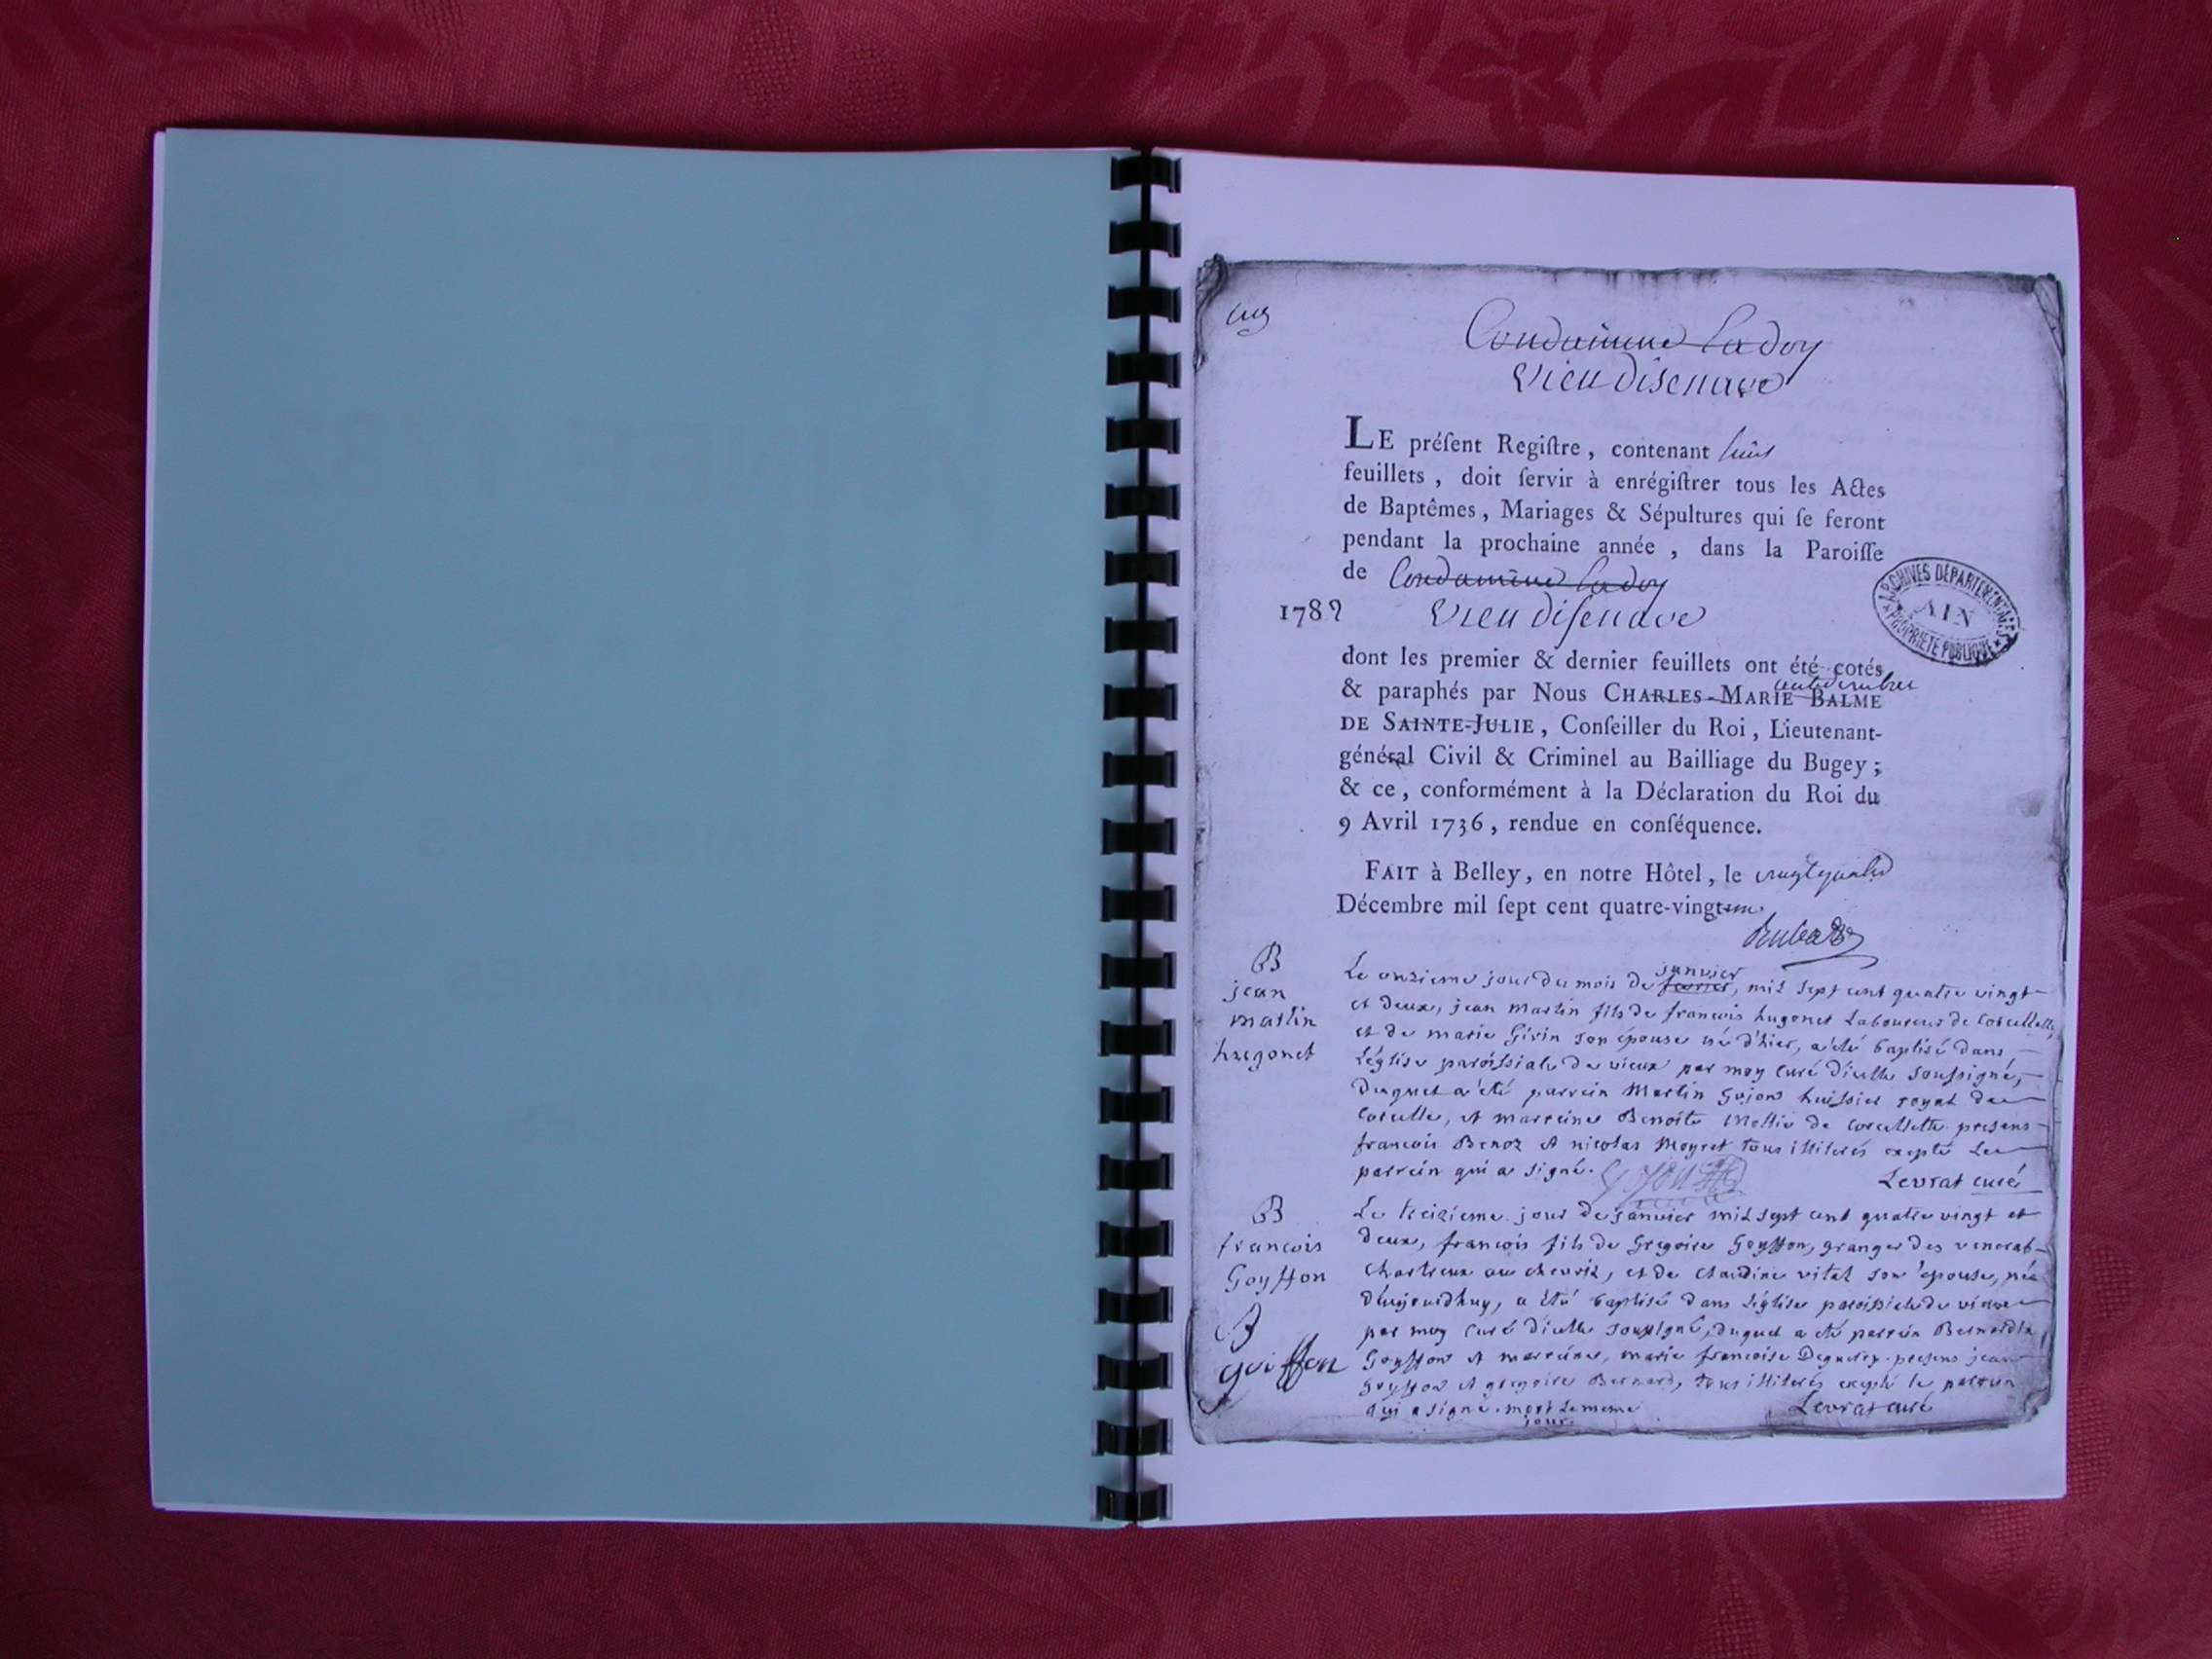 ANNEE 1782
NAISSANCES
MARIAGES
DECES
Condamine Ladoy
vieu disenave
LE préſent Regiſtre, contenant huit
feuillets, doit ſervir à enrégiſtrer tous les Actes
de Baptêmes, Mariages & Sépultures qui ſe feront
pendant la prochaine année, dans la Paroiſſe
de Condamine Ladoy
1782 vieu diſenave
ARCHIVES DÉPARTEMENTALES
AIN
PROPRIÉTÉ PUBLIQUE
dont les premier & dernier feuillets ont été cotés
& paraphés par Nous CHARLES-MARIE BALME
DE SAINTE-JULIE, Conſeiller du Roi, Lieutenant-
général Civil & Criminel au Bailliage du Bugey;
& ce, conformément à la Déclaration du Roi du
9 Avril 1736, rendue en conſéquence.
FAIT à Belley, en notre Hôtel, le vingt quatre
Décembre mil ſept cent quatre-vingt un.
B
jean
martin
hugonet
janvier
Le onzieme jour du mois de fevrier, mil sept cent quatre vingt
et deux, jean martin fils de francois hugonet Laboureur de Corcellette,
et de marie Girin son épouse né d'hier, a été baptisé dans
L'église paroissiale de vieux par moy curé d'icelle soussigné,
Duquel a été parrein Martin Gojon huissier royal de
Corcelle, et marreine Benoite Mollie de corcellette presens
francois Benoz et nicolas Moyret tous illiterés excepté Le
parrein qui a signé. Levrat curé
B
francois
Goyffon
Le treizieme jour de janvier mil sept cent quatre vingt et
deux, francois fils de Gregoire Goyffon, granger des venerab
Chartreux au chevril, et de claudine vital son épouse, né
D'aujourdhuy, a été baptisé dans L'église paroissiale de vieux
par moy curé d'icelle soussigné, duquel a été parrein Bernardin
Goyffon et marreine, marie francoise presens jean
Goyffon et gregoire Bernard, tous illiterés excepté le parrein
qui a signé. mort le meme Levrat curé
jour
B
goiffon